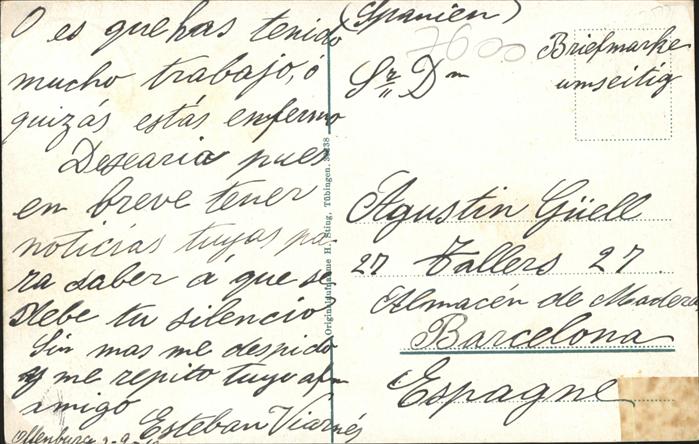 O es que has tenido
mucho trabajo, ó
quizás estás enfermo
Desearia pues
en breve tener
noticias tuyas pa-
ra saber á que se
debe tu silencio
Sin mas me despido
y me repito tuyo afmo
amigo
Esteban Viarnés
Originalaufnahme H. Sting, Tübingen.
(Spanien)
7600
Briefmarke
umseitig
Sr. Dn
Agustin Güell
27 Tallers 27.
Almacén de Madera
Barcelona
Espagne